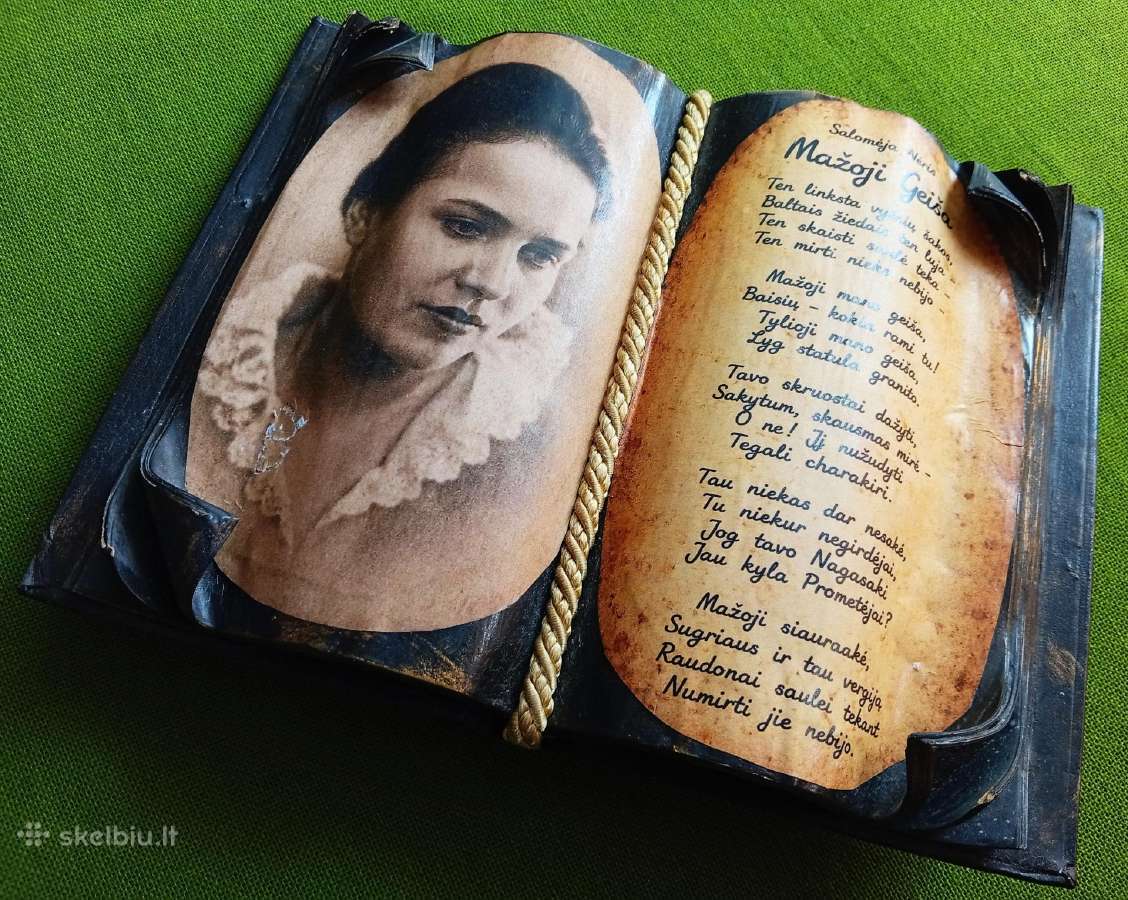 Salomėja Nėris
Mažoji Geiša
Ten linksta vyšnių šakos,
Baltais žiedais ten lyja
Ten skaisti saulė teka -
Ten mirti nieks nebijo -
Mažoji mano geiša,
Baisių - kokia rami tu!
Tylioji mano geiša,
Lyg statula granito.
Tavo skruostai dažyti,
Sakytum, skausmas mirė -
O ne! Jį nužudyti
Tegali charakiri.
Tau niekas dar nesakė,
Tu niekur negirdėjai,
Jog tavo Nagasaki
Jau kyla Prometėjai?
Mažoji siauraakė,
Sugriaus ir tau vergiją
Raudonai saulei tekant
Numirti jie nebijo.
skelbiu.lt